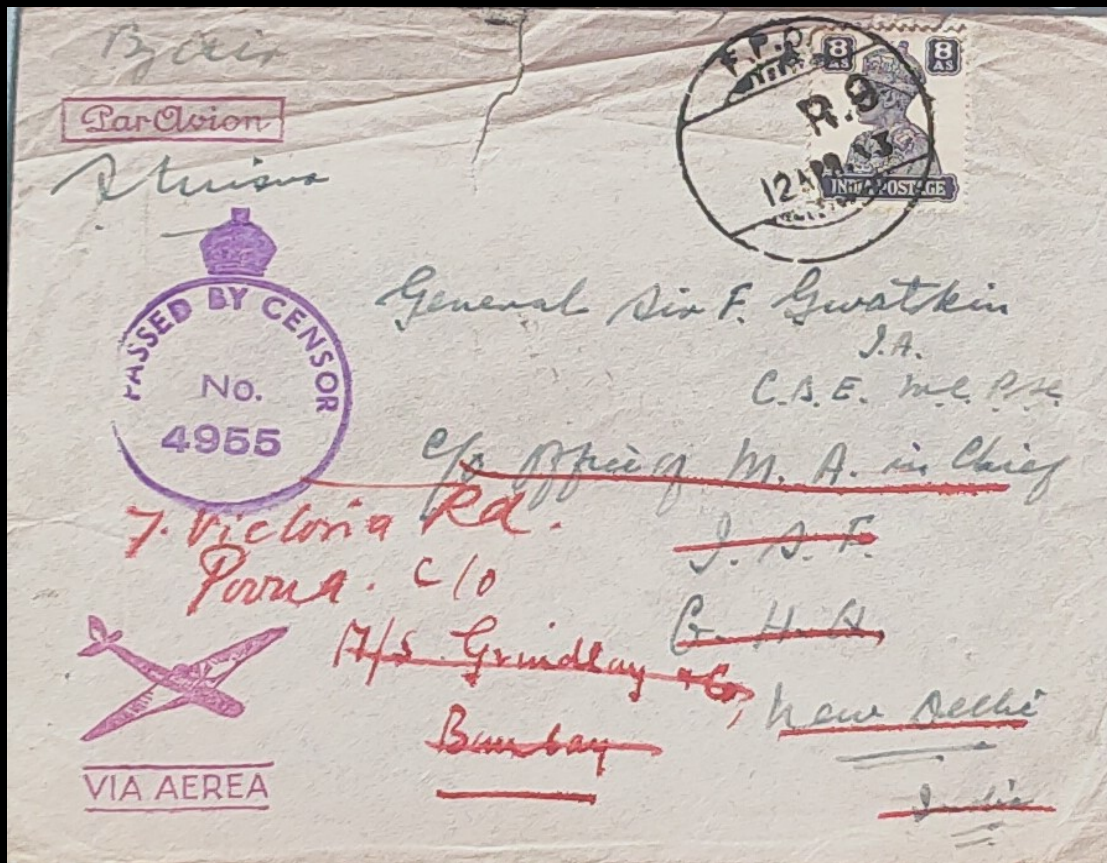 By Air
Par Avion
F.P.O.
R.9
12 APR. 43
8 AS
8 AS
INDIA POSTAGE
PASSED BY CENSOR
No.
4955
General Sir F. Gwatkin
I.A.
C.B.E. M.C.
c/o Office of M. A. in Chief
I. S. F.
G. H. Q.
New Delhi
India
7. Victoria Rd.
Poona. C/o
M/s Grindlay & Co,
Bombay
VIA AEREA